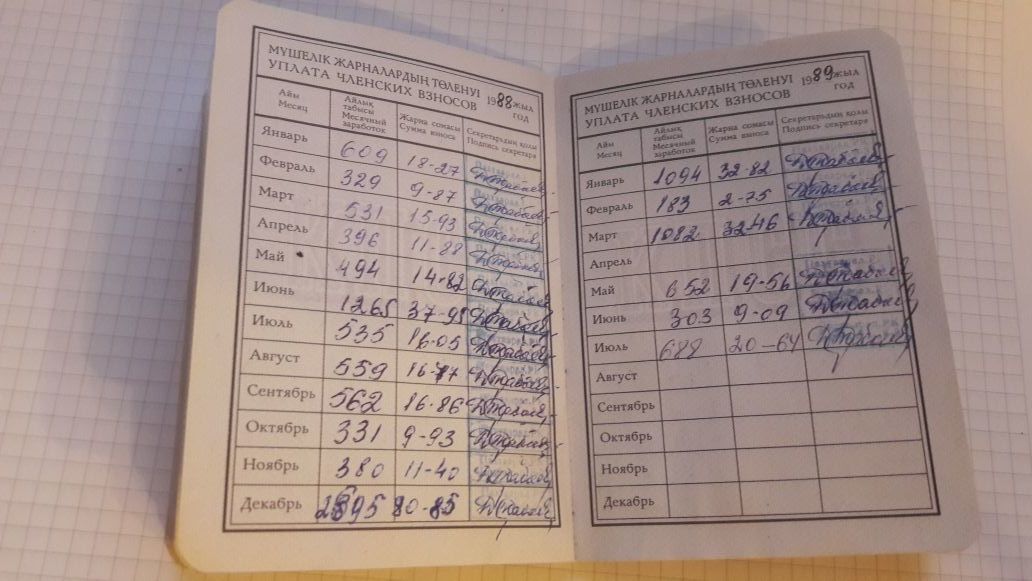 МҮШЕЛІК ЖАРНАЛАРДЫҢ ТӨЛЕНУІ 1988 жыл
УПЛАТА ЧЛЕНСКИХ ВЗНОСОВ год
Айы Айлық Жарна сомасы Секретарьдың қолы
Месяц табысы Сумма взноса Подпись секретаря
Месячный
заработок
Январь 609 18-27
Февраль 329 9-87
Март 531 15-93
Апрель 396 11-88
Май 494 14-82
Июнь 1265 37-95
Июль 535 16-05
Август 559 16-77
Сентябрь 562 16-86
Октябрь 331 9-93
Ноябрь 380 11-40
Декабрь
МҮШЕЛІК ЖАРНАЛАРДЫҢ ТӨЛЕНУІ 1989 жыл
УПЛАТА ЧЛЕНСКИХ ВЗНОСОВ год
Айы Айлық Жарна сомасы Секретарьдың қолы
Месяц табысы Сумма взноса Подпись секретаря
Месячный
заработок
Январь 1094 32-82
Февраль 183 2-75
Март 1082 32-46
Апрель
Май 652 19-56
Июнь 303 9-09
Июль 688 20-64
Август
Сентябрь
Октябрь
Ноябрь
Декабрь